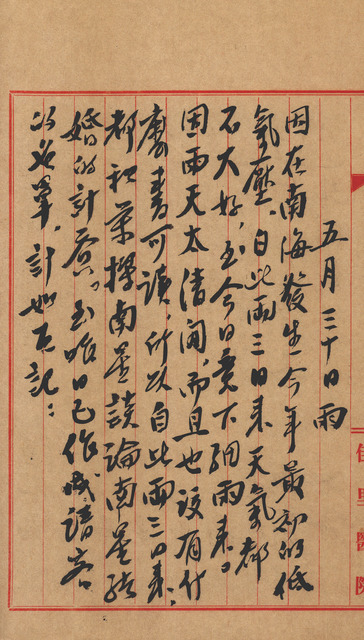 五月三十日雨
因在南海發生一今年最初的低
氣壓、自此兩三日來天氣都
不大好，至今日竟下細雨來。
因雨天太清閑，而且也沒有什
麼書可讀，所以自此兩三日來：
都和葉擇南星談論南星結
婚的計畫。至昨日已作成請客
的名單，計如下記：
佳里醫院